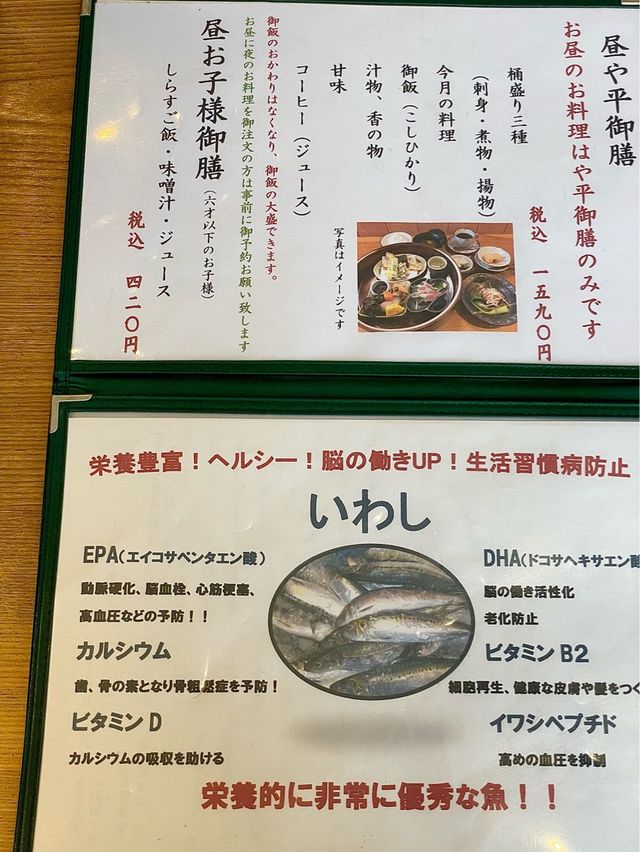 昼や平御膳
お昼のお料理はや平御膳のみです
税込 一五九〇円
桶盛り三種
(刺身・煮物・揚物)
今月の料理
御飯(こしひかり)
汁物、香の物
甘味
コーヒー(ジュース)
写真はイメージです
御飯のおかわりはなくなり、御飯の大盛できます。
お昼に夜のお料理を御注文の方は事前に御予約お願い致します
昼お子様御膳(六才以下のお子様)
しらすご飯・味噌汁・ジュース
税込 四二〇円
栄養豊富！ヘルシー！脳の働きUP！生活習慣病防止
いわし
EPA(エイコサペンタエン酸)
動脈硬化、脳血栓、心筋梗塞、
高血圧などの予防！！
カルシウム
歯、骨の素となり骨粗鬆症を予防！
ビタミンD
カルシウムの吸収を助ける
DHA(ドコサヘキサエン酸
脳の働き活性化
老化防止
ビタミンB2
細胞再生、健康な皮膚や髪をつく
イワシペプチド
高めの血圧を抑制
栄養的に非常に優秀な魚！！